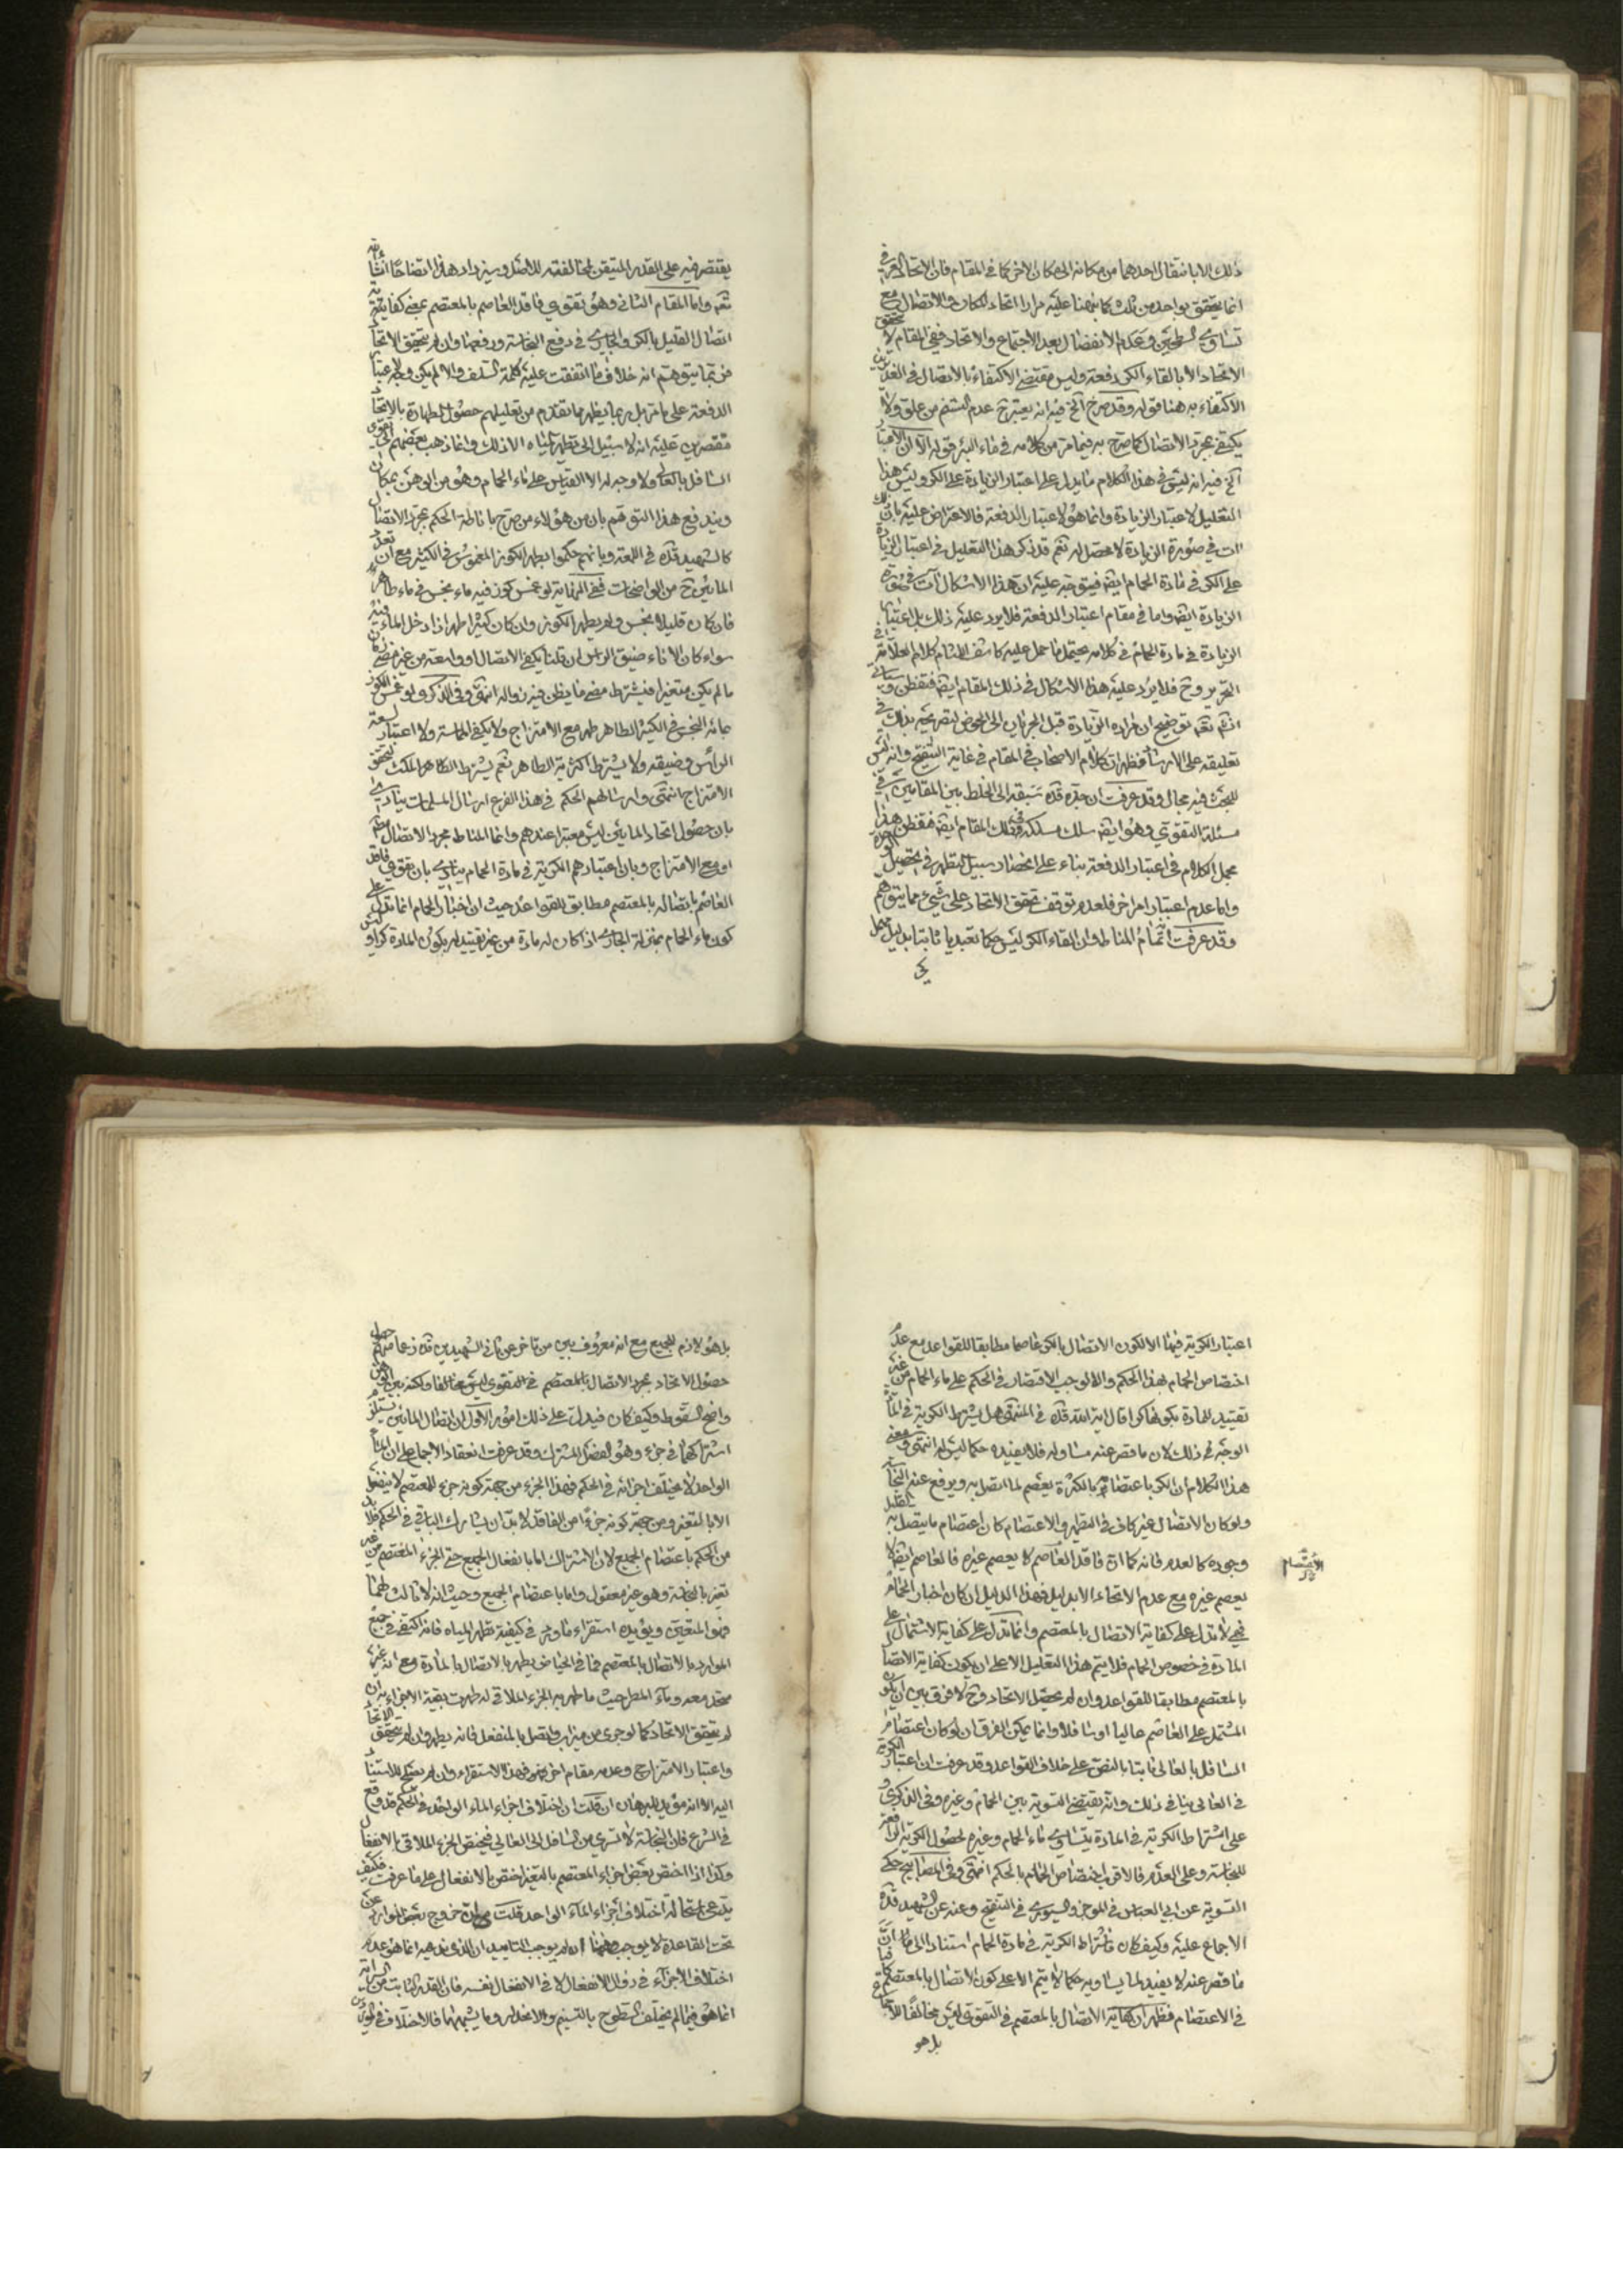 ذلك الا بانتقال احدهما من مكانه الى مكان الاخر كما في المقام فان الاتحاد العرفي
انما يتحقق بواحد من ذلك كما نبهنا عليه مرارا اتحاد المكان والاتصال مع
تساوي السطحين وعدم الانفصال بعد الاجتماع والاتحاد ففي المقام لا يتحقق
الاتحاد الا بالقاء الكر دفعة وليس مقتضى الاكتفاء بالاتصال في الغديرين
الاكتفاء به هنا قوله وقد صرح الخ فيه انه يعتبر ح عدم التسنم من علو ولا
يكتفي بمجرد الاتصال كما صرح به فيما مر من كلامه في ماء البئر قوله الا ان الاعتبار
الخ فيه انه ليس في هذا الكلام ما يدل على اعتبار الزيادة على الكر وليس هذا
التعليل لاعتبار الزيادة وانما هو لاعتبار الدفعة فالاعتراض عليه بان ذلك
ات في صورة الزيادة لا محصل له نعم قد ذكر هذا التعليل في اعتبار الزيادة
على الكر في مادة الحمام ايضا فيتوجه عليه ان هذا الاشكال ات في صورة
الزيادة ايضا واما في مقام اعتبار الدفعة فلا يرد عليه ذلك بل اعتبار
الزيادة في مادة الحمام في كلامه يحتمل ما حمل عليه كاشف اللثام كلام العلامة في
التحرير وح فلا يرد عليه هذا الاشكال في ذلك المقام ايضا فتفطن وسياتي
انش تعه توضيح ان مراده الزيادة قبل الجريان الى الحوض لتصريحه بذلك في
تعليقه على الارشاد فظهر ان كلام الاصحاب في المقام في غاية التنقيح وانه ليس
للبحث فيه مجال وقد عرفت ان جده قده سبقه الى الخلط بين المقامين في
مسئلة التقوي وهو ايضا سلك مسلكه في ذلك المقام ايضا فتفطن هذا
مجمل الكلام في اعتبار الدفعة بناء على انحصار سبيل التطهير في تحصيل الاتحاد
واما عدم اعتبار امر اخر فلعدم توقف تحقق الاتحاد على شيء مما يتوهم
وقد عرفت انه تمام المناط وان القاء الكر ليس حكما تعبديا ثابتا بدليل مجمل
يقتصر فيه على القدر المتيقن لمخالفته للاصل وسيزداد هذا اتضاحا انشاء الله
تعه واما المقام الثاني وهو تقوي فاقد العاصم بالمعتصم بمعنى كفاية
اتصال القليل بالكر والجاري في دفع النجاسة ورفعها وان لم يتحقق الاتحاد
فربما يتوهم انه خلاف ما اتفقت عليه كلمة السلف والا لم يكن وجه لاعتبار
الدفعة على ما مر بل ربما يظهر مما تقدم من تعليلهم حصول الطهارة بالاتحاد
مقتصرين عليه انه لا سبيل الى تطهير المياه الا ذلك وانما ذهب بعضهم الى تقوي
السافل بالعالي ولا وجه له الا القياس على ماء الحمام وهو من الوهن بمكان
ويندفع هذا التوهم بان من هؤلاء من صرح باناطة الحكم بمجرد الاتصال
كالشهيد قده في اللمعة وبانهم حكموا بطهر الكوز المغموس في الكثير مع ان تعدد
المائين ح من الواضحات ففي النهاية لو غمس كوز فيه ماء نجس في ماء طاهر
فان كان قليلا نجس ولم يطهر الكوز وان كان كثيرا طهر اذا دخل الماء فيه
سواء كان الاناء ضيق الراس ان قلنا يكفي الاتصال او واسعه من غير مضي زمان
ما لم يكن متغيرا فيشترط مضي ما يظن فيه زواله انتهى وفي الذكرى ولو غمس الكوز
بمائه النجس في الكثير الطاهر طهر مع الامتزاج ولا يكفي المماسة ولا اعتبار لسعة
الراس وضيقه ولا يشترط اكثرية الطاهر نعم يشترط الطاهر المكث ليتحقق
الامتزاج انتهى وارسالهم الحكم في هذا الفرع ارسال المسلمات ينادي
بان حصول اتحاد المائين ليس معتبرا عندهم وانما المناط مجرد الاتصال
او مع الامتزاج وبان اعتبارهم الكرية في مادة الحمام ينادي بان تقوي فاقد
العاصم باتصاله بالمعتصم مطابق للقواعد حيث ان اخبار الحمام انما تدل على
كون ماء الحمام بمنزلة الجاري اذا كان له مادة من غير تقييد له بكون المادة كرا وليس
اعتبار الكرية فيها الا لكون الاتصال بالكر عاصما مطابقا للقواعد مع عدم
اختصاص الحمام بهذا الحكم والا لوجب الاقتصار في الحكم على ماء الحمام من غير
تقييد للمادة بكونها كرا قال اية الله قده في المنتهى هل يشترط الكرية في المادة
الوجه في ذلك لان ما قصر عنه مساو له فلا يفيده حكما ليس له انتهى ومعنى
هذا الكلام ان الكر باعتصامه بالكثرة يعصم لما اتصل به ويرفع عنه النجاسة
ولو كان الاتصال غير كاف في التطهير والاعتصام كان اعتصام ما يتصل به القليل
وجوده كالعدم فانه كما ان فاقد العاصم لا يعصم غيره فالعاصم ايضا لا
الاعتصام
يعصم غيره مع عدم الاتحاد الا بدليل فهذا الدليل ان كان اخبار الحمام
فهي لا تدل على كفاية الاتصال بالمعتصم وانما تدل على كفاية الاشتمال على
المادة في خصوص الحمام فلا يتم هذا التعليل الا على ان يكون كفاية الاتصال
بالمعتصم مطابقا للقواعد وان لم يحصل الاتحاد وح لا فرق بين ان يكون
المشتمل على العاصم عاليا او سافلا وانما يمكن الفرق ان لو كان اعتصام
السافل بالعالي ثابتا بالنص على خلاف القواعد وقد عرفت ان اعتبار الكرية
في العالي ينافي ذلك وانه يقتضي التسوية بين الحمام وغيره وفي الذكرى و
على اشتراط الكرية في المادة يتساوى ماء الحمام وغيره لحصول الكرية الدافعة
للنجاسة وعلى العدم فالاقرب اختصاص الحمام بالحكم انتهى وفي المصابيح حكى
التسوية عن ابي العباس في الموجز والسيوري في التنقيح وعنه عن الشهيد قده
الاجماع عليه وكيف كان فاشتراط الكرية في مادة الحمام استنادا الى ان
ما قصر عنه لا يفيد لما يساويه حكما لا يتم الا على كون الاتصال بالمعتصم كافيا
في الاعتصام فظهر ان كفاية الاتصال بالمعتصم في التقوي ليس مخالفا للاجماع
بل هو
بل هو لازم للجميع مع انه معروف بين من تاخر عن ثاني الشهيدين قده زعما منهم
حصول الاتحاد بمجرد الاتصال بالمعتصم في التقوي ليس مخالفا ولكنه بين الوهن
واضح السقوط وكيف كان فيدل على ذلك امور الاول ان اتصال المائين يستلزم
اشتراكهما في جزء وهو الفصل المشترك وقد عرفت انعقاد الاجماع على ان الماء
الواحد لا يختلف اجزائه في الحكم فهذا الجزء من جهة كونه جزء للمعتصم لا ينفعل
الا بالتغير ومن جهة كونه جزءا من الفاقد لا بد ان يشارك الباقي في الحكم فلا بد
من الحكم باعتصام الجميع لان الاشتراك اما بانفعال الجميع حتى الجزء المعتصم من غير
تغير بالنجاسة وهو غير معقول واما باعتصام الجميع وحيث انه لا ثالث لهما
فهو المتعين ويؤيده استقراء ما ورد في كيفية تطهير المياه فانه اكتفى في جميع
الموارد بالاتصال بالمعتصم فما في الحياض يطهر بالاتصال بالمادة مع انه غير
متحد معه وماء المطر حيث ما طهر به الجزء الملاقي له طهرت بقية الاجزاء به وان
لم يتحقق الاتحاد كما لو جرى من ميزاب واتصل بالمنفعل فانه يطهر وان لم يتحقق الاتحاد
واعتبار الامتزاج وعدمه مقام اخر فهذا الاستقراء وان لم يصلح للاستناد
اليه الا انه مؤيد للبرهان ان قلت ان اختلاف اجزاء الماء الواحد في الحكم قد وقع
في الشرع فان النجاسة لا تسري من السافل الى العالي فيختص الجزء الملاقي بالانفعال
وكذا اذا اختص بعض اجزاء المعتصم بالتغير اختص بالانفعال على ما عرفت فكيف
يدعى استحالة اختلاف اجزاء الماء الواحد قلت خروج بعض الموارد عن
تحت القاعدة لا يوجب ان الذي ندعيه انما هو عدم
اختلاف الاجزاء في دفع الانفعال لا في الانفعال نفسه فان القدر الثابت من السراية
انما هو فيما لم يختلف السطوح بالتسنيم والانحدار وما يشبهها فالاختلاف في